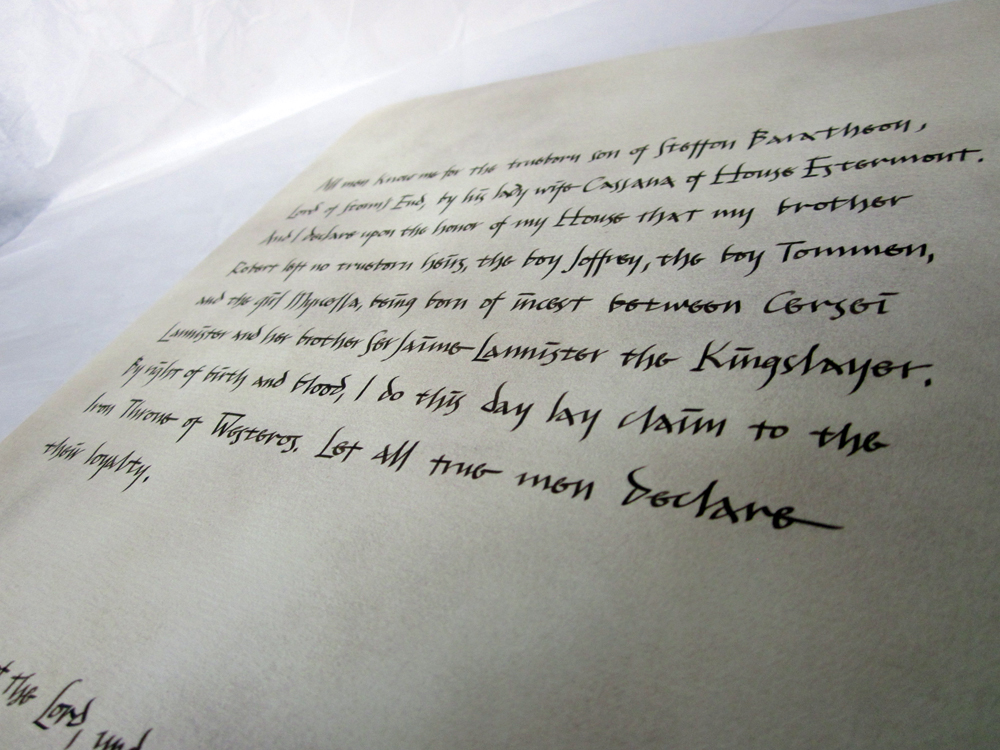 All men know me for the trueborn son of Steffon Baratheon,
Lord of Storm's End, by his lady wife Cassana of House Estermont.
And I declare upon the honor of my House that my brother
Robert left no trueborn heirs, the boy Joffrey, the boy Tommen,
and the girl Myrcella, being born of incest between Cersei
Lannister and her brother Ser Jaime Lannister the Kingslayer.
By right of birth and blood, I do this day lay claim to the
Iron Throne of Westeros. Let all true men declare
their loyalty.
the Lord,